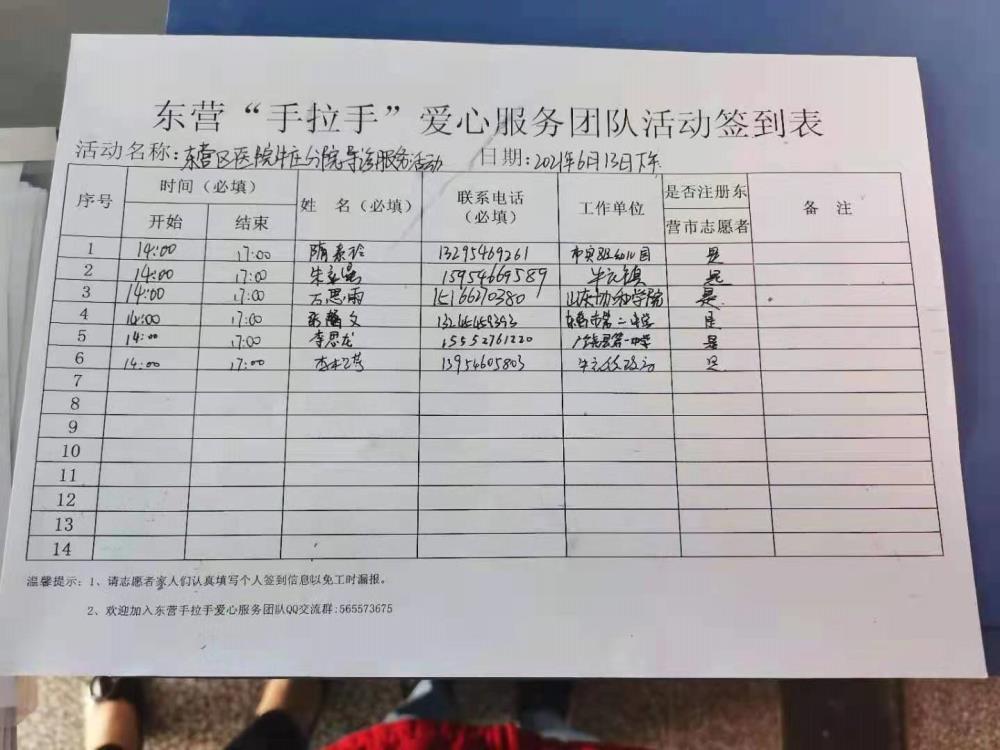 东营“手拉手”爱心服务团队活动签到表
活动名称:东营区医院牛庄分院导诊服务活动 日期:2021年6月13日下午
序号 时间（必填） 姓 名（必填） 联系电话（必填） 工作单位 是否注册东营市志愿者 备 注
开始 结束
1 14:00 17:00 隋素玲 13295469261 幼儿园 是
2 14:00 17:00 朱 15954669589 牛庄镇 是
3 14:00 17:00 万思雨 15166270380 山东协和学院 是
4 14:00 17:00 文 东营市第二中学 是
5 14:00 17:00 李思龙 15552761220 广饶县第一中学 是
6 14:00 17:00 李 13954605803 是
7
8
9
10
11
12
13
14
温馨提示: 1、请志愿者家人们认真填写个人签到信息以免工时漏报。
2、欢迎加入东营手拉手爱心服务团队QQ交流群:565573675